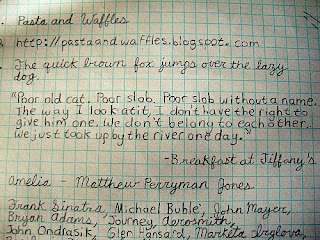 Pasta and Waffles
http://pastaandwaffles.blogspot.com
The quick brown fox jumps over the lazy
dog.
"Poor old cat. Poor slob. Poor slob without a name.
The way I look at it, I don't have the right to
give him one. We don't belong to each other.
We just took up by the river one day."
-Breakfast at Tiffany's
Amelia - Matthew Perryman Jones
Frank Sinatra, Michael Buble', John Mayer,
Bryan Adams, Journey, Aerosmith,
John Ondrasik, Glen Hansard, Marketa Irglova,